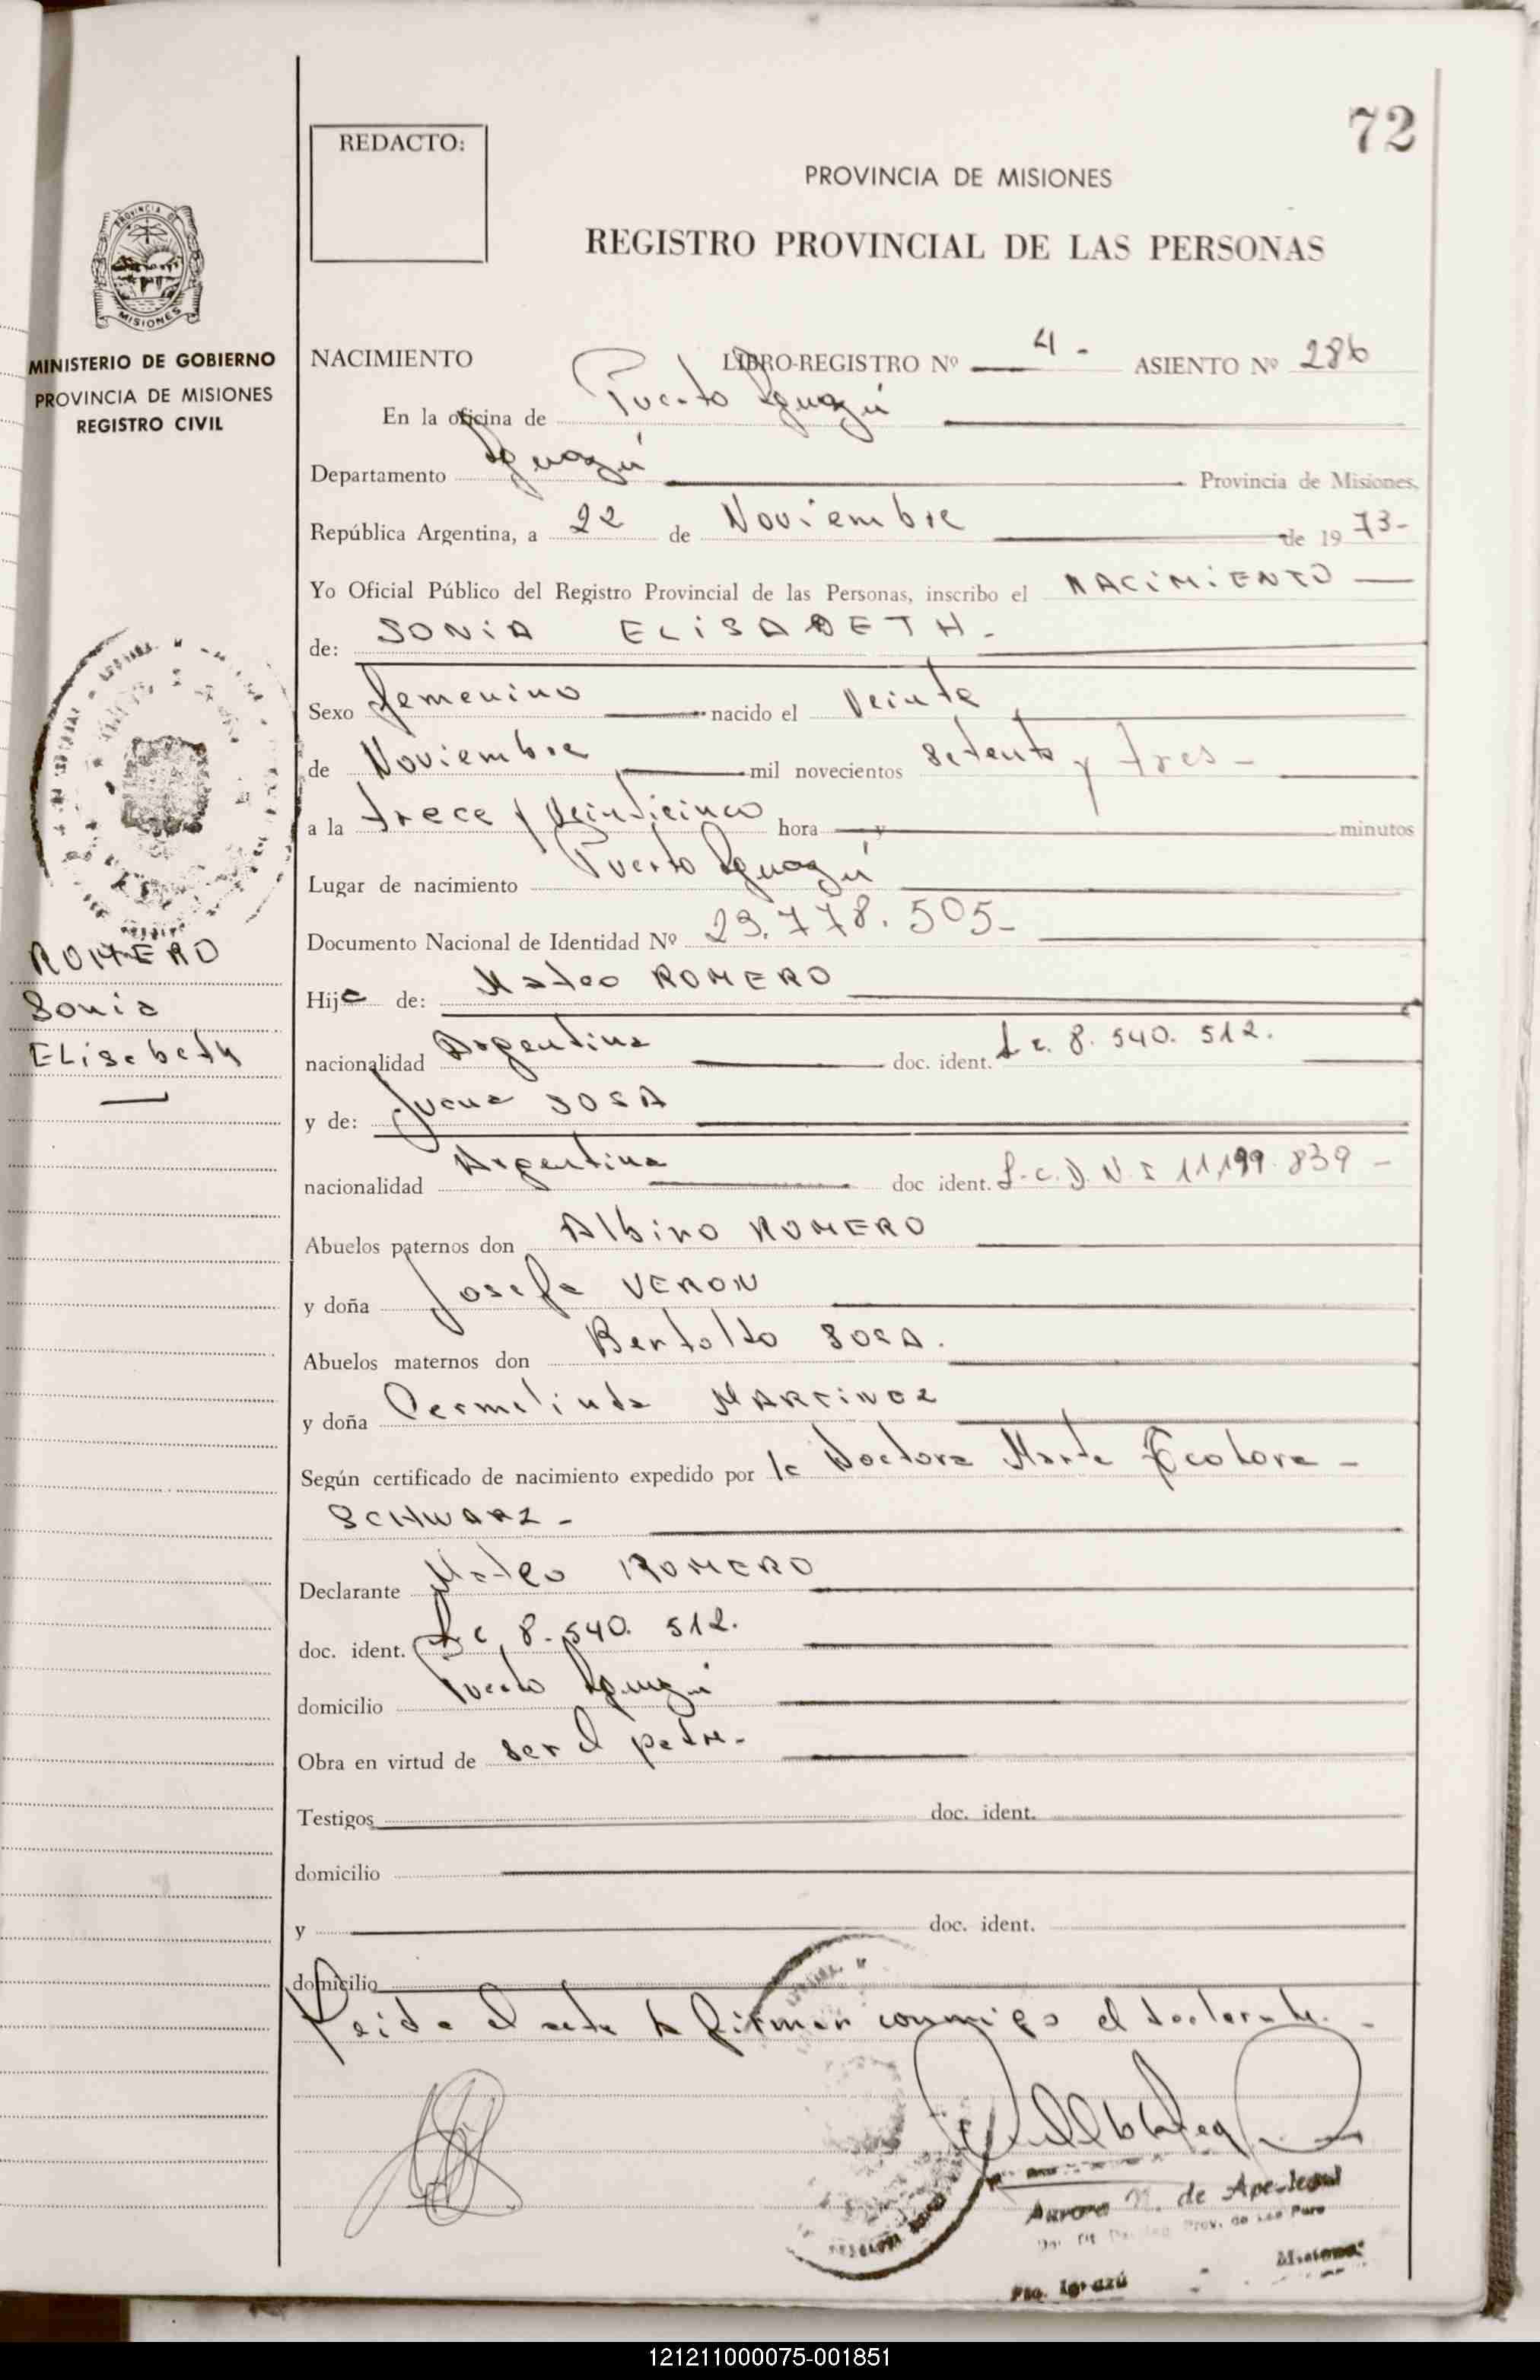 72
REDACTO:
PROVINCIA DE MISIONES
REGISTRO PROVINCIAL DE LAS PERSONAS
PROVINCIA DE
MISIONES
MINISTERIO DE GOBIERNO
PROVINCIA DE MISIONES
REGISTRO CIVIL
NACIMIENTO LIBRO-REGISTRO Nº 4- ASIENTO Nº 286
En la oficina de Puerto Iguazú
Departamento Iguazú Provincia de Misiones,
República Argentina, a 22 de Noviembre de 1973-
Yo Oficial Público del Registro Provincial de las Personas, inscribo el NACIMIENTO
de: SONIA ELISABETH-
Sexo femenino nacido el Veinte
de Noviembre mil novecientos setenta y tres-
a la trece y veinticinco hora y minutos
Lugar de nacimiento Puerto Iguazú
Documento Nacional de Identidad Nº 23.778.505-
ROMERO
Sonia
ELisabeth
Hija de: Mateo ROMERO
nacionalidad Argentina doc. ident. L.e. 8.540.512.
y de: Juana SOSA
nacionalidad Argentina doc ident. L.C.D.N.I 11,199.839-
Abuelos paternos don Albino ROMERO
y doña Josefa VERON
Abuelos maternos don Bertoldo SOSA.
y doña MARTINEZ
Según certificado de nacimiento expedido por la Doctora Marta Teodora-
SCHWARZ-
Declarante Mateo ROMERO
doc. ident. L.e, 8.540.512.
domicilio Puerto Iguazú
Obra en virtud de ser el padre-
Testigos doc. ident.
domicilio
y doc. ident.
domicilio
Leida el acta la firman conmigo el declarante.-
Aurora N. de
Pto. Iguazú Misiones
121211000075-001851